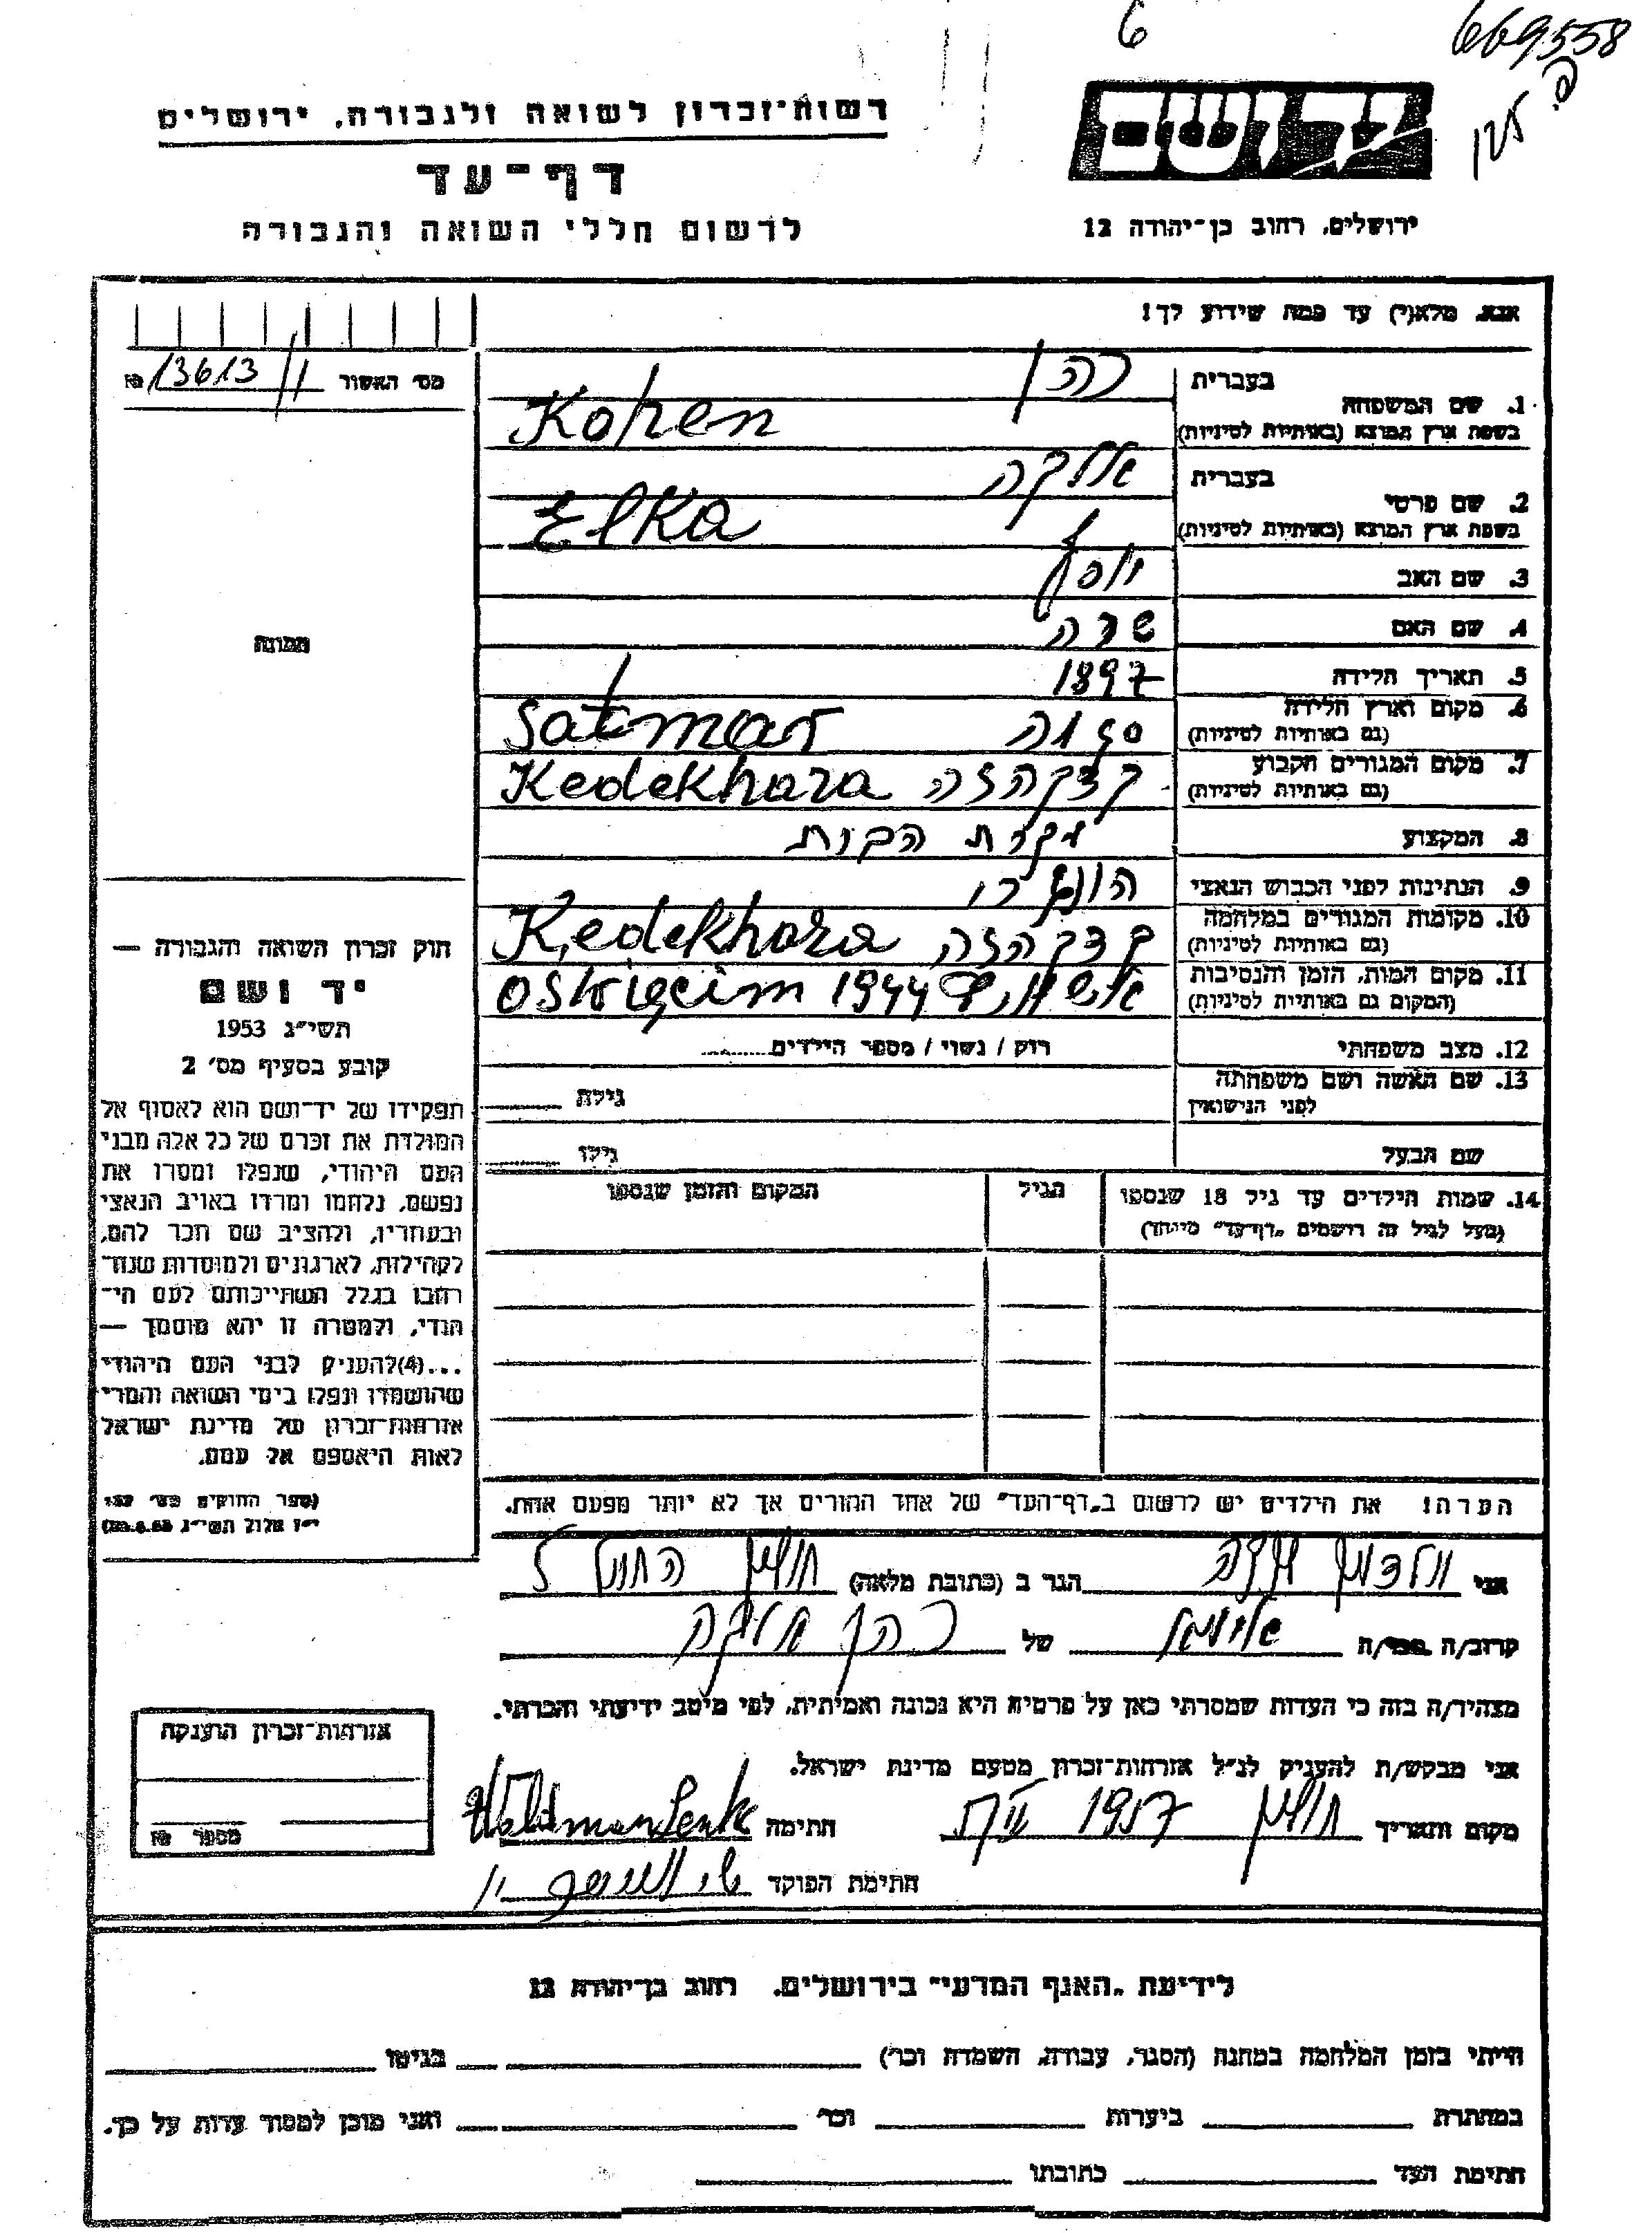 6
669558
רשות־זכרון לשואה ולגבורה, ירושלים
דף־עד
לרשום חללי השואה והגבורה
ידושם
ירושלים, רחוב בן־יהודה 12
אנא, מלא(י) עד כמה שידוע לך!
מס' האשור 13613 №
בעברית כהן
1. שם המשפחה
בשפת ארץ המוצא (באותיות לטיניות) Kohen
בעברית אלקה
2. שם פרטי
בשפת ארץ המוצא (באותיות לטיניות) Elka
3. שם האב יוסף
4. שם האם שרה
5. תאריך הלידה 1897
6. מקום וארץ הלידה
(גם באותיות לטיניות) Satmar
7. מקום המגורים הקבוע
(גם באותיות לטיניות) קדקהזה Kedekhaza
8. המקצוע עקרת הבית
9. הנתינות לפני הכבוש הנאצי הונגרי
10. מקומות המגורים במלחמה
(גם באותיות לטיניות) קדקהזה Kedekhaza
11. מקום המות, הזמן והנסיבות
(המקום גם באותיות לטיניות) 1944 Ostwięcim
12. מצב משפחתי רוק / נשוי / מספר הילדים
13. שם האשה ושם משפחתה
לפני הנישואין גילה
שם הבעל גילו
14. שמות הילדים עד גיל 18 שנספו הגיל המקום והזמן שנספו
(מעל לגיל זה רושמים „דף־עד" מיוחד)
תמונה
חוק זכרון השואה והגבורה —
יד ושם
תשי״ג 1953
קובע בסעיף מס׳ 2
תפקידו של יד־ושם הוא לאסוף אל
המולדת את זכרם של כל אלה מבני
העם היהודי, שנפלו ומסרו את
נפשם, נלחמו ומרדו באויב הנאצי
ובעוזריו, ולהציב שם וזכר להם,
לקהילות, לארגונים ולמוסדות שנח־
רבו בגלל השתייכותם לעם הי־
הודי, ולמטרה זו יהא מוסמך —
...(4) להעניק לבני העם היהודי
שהושמדו ונפלו בימי השואה והמרי
אזרחות־זכרון של מדינת ישראל
לאות היאספם אל עמם.
(ספר החוקים מס׳ 132
י״ז אלול תשי״ג 28.8.53)
הערה! את הילדים יש לרשום ב„דף־העד" של אחד ההורים אך לא יותר מפעם אחת.
אני ולדמן הגר ב (כתובת מלאה) חולון
קרוב/ה של כהן אלקה
מצהיר/ה בזה כי העדות שמסרתי כאן על פרטיה היא נכונה ואמיתית, לפי מיטב ידיעתי והכרתי.
אני מבקש/ת להעניק לנ״ל אזרחות־זכרון מטעם מדינת ישראל.
מקום ותאריך חולון 1957 חתימה Waldman Lenke
חתימת הפוקד
אזרחות־זכרון הוענקה
מספר №
לידיעת „האגף המדעי" בירושלים, רחוב בן־יהודה 12
הייתי בזמן המלחמה במחנה (הסגר, עבודה, השמדה וכו׳) בגיטו
במחתרת ביערות וכו׳ ואני מוכן למסור עדות על כך.
חתימת העד כתובתו